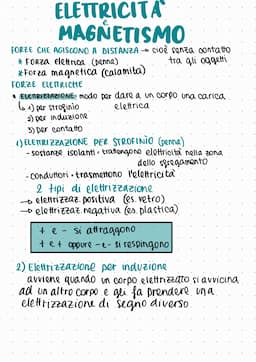 ELETTRICITA'
E
MAGNETISMO
FORZE CHE AGISCONO A DISTANZA → cioè senza contatto
* FORZA elettrica (penna) tra gli oggetti
* Forza magnetica (calamita)
FORZE ELETTRICHE
* ELETTRIZZAZIONE: modo per dare a un corpo una carica
↳ 1) per strofinio elettrica
2) per induzione
3) per contatto
1) ELETTRIZZAZIONE PER STROFINIO (penna)
- sostanze isolanti: trattengono elettricità nella zona
dello sfregamento
- conduttori: trasmettono l'elettricità
2 tipi di elettrizzazione
→ elettrizzaz. positiva (es. vetro)
→ elettrizzaz. negativa (es. plastica)
+ e - si attraggono
+ e + oppure - e - si respingono
2) Elettrizzazione per induzione
avviene quando un corpo elettrizzato si avvicina
ad un altro corpo e gli fa prendere una
elettrizzazione di segno diverso